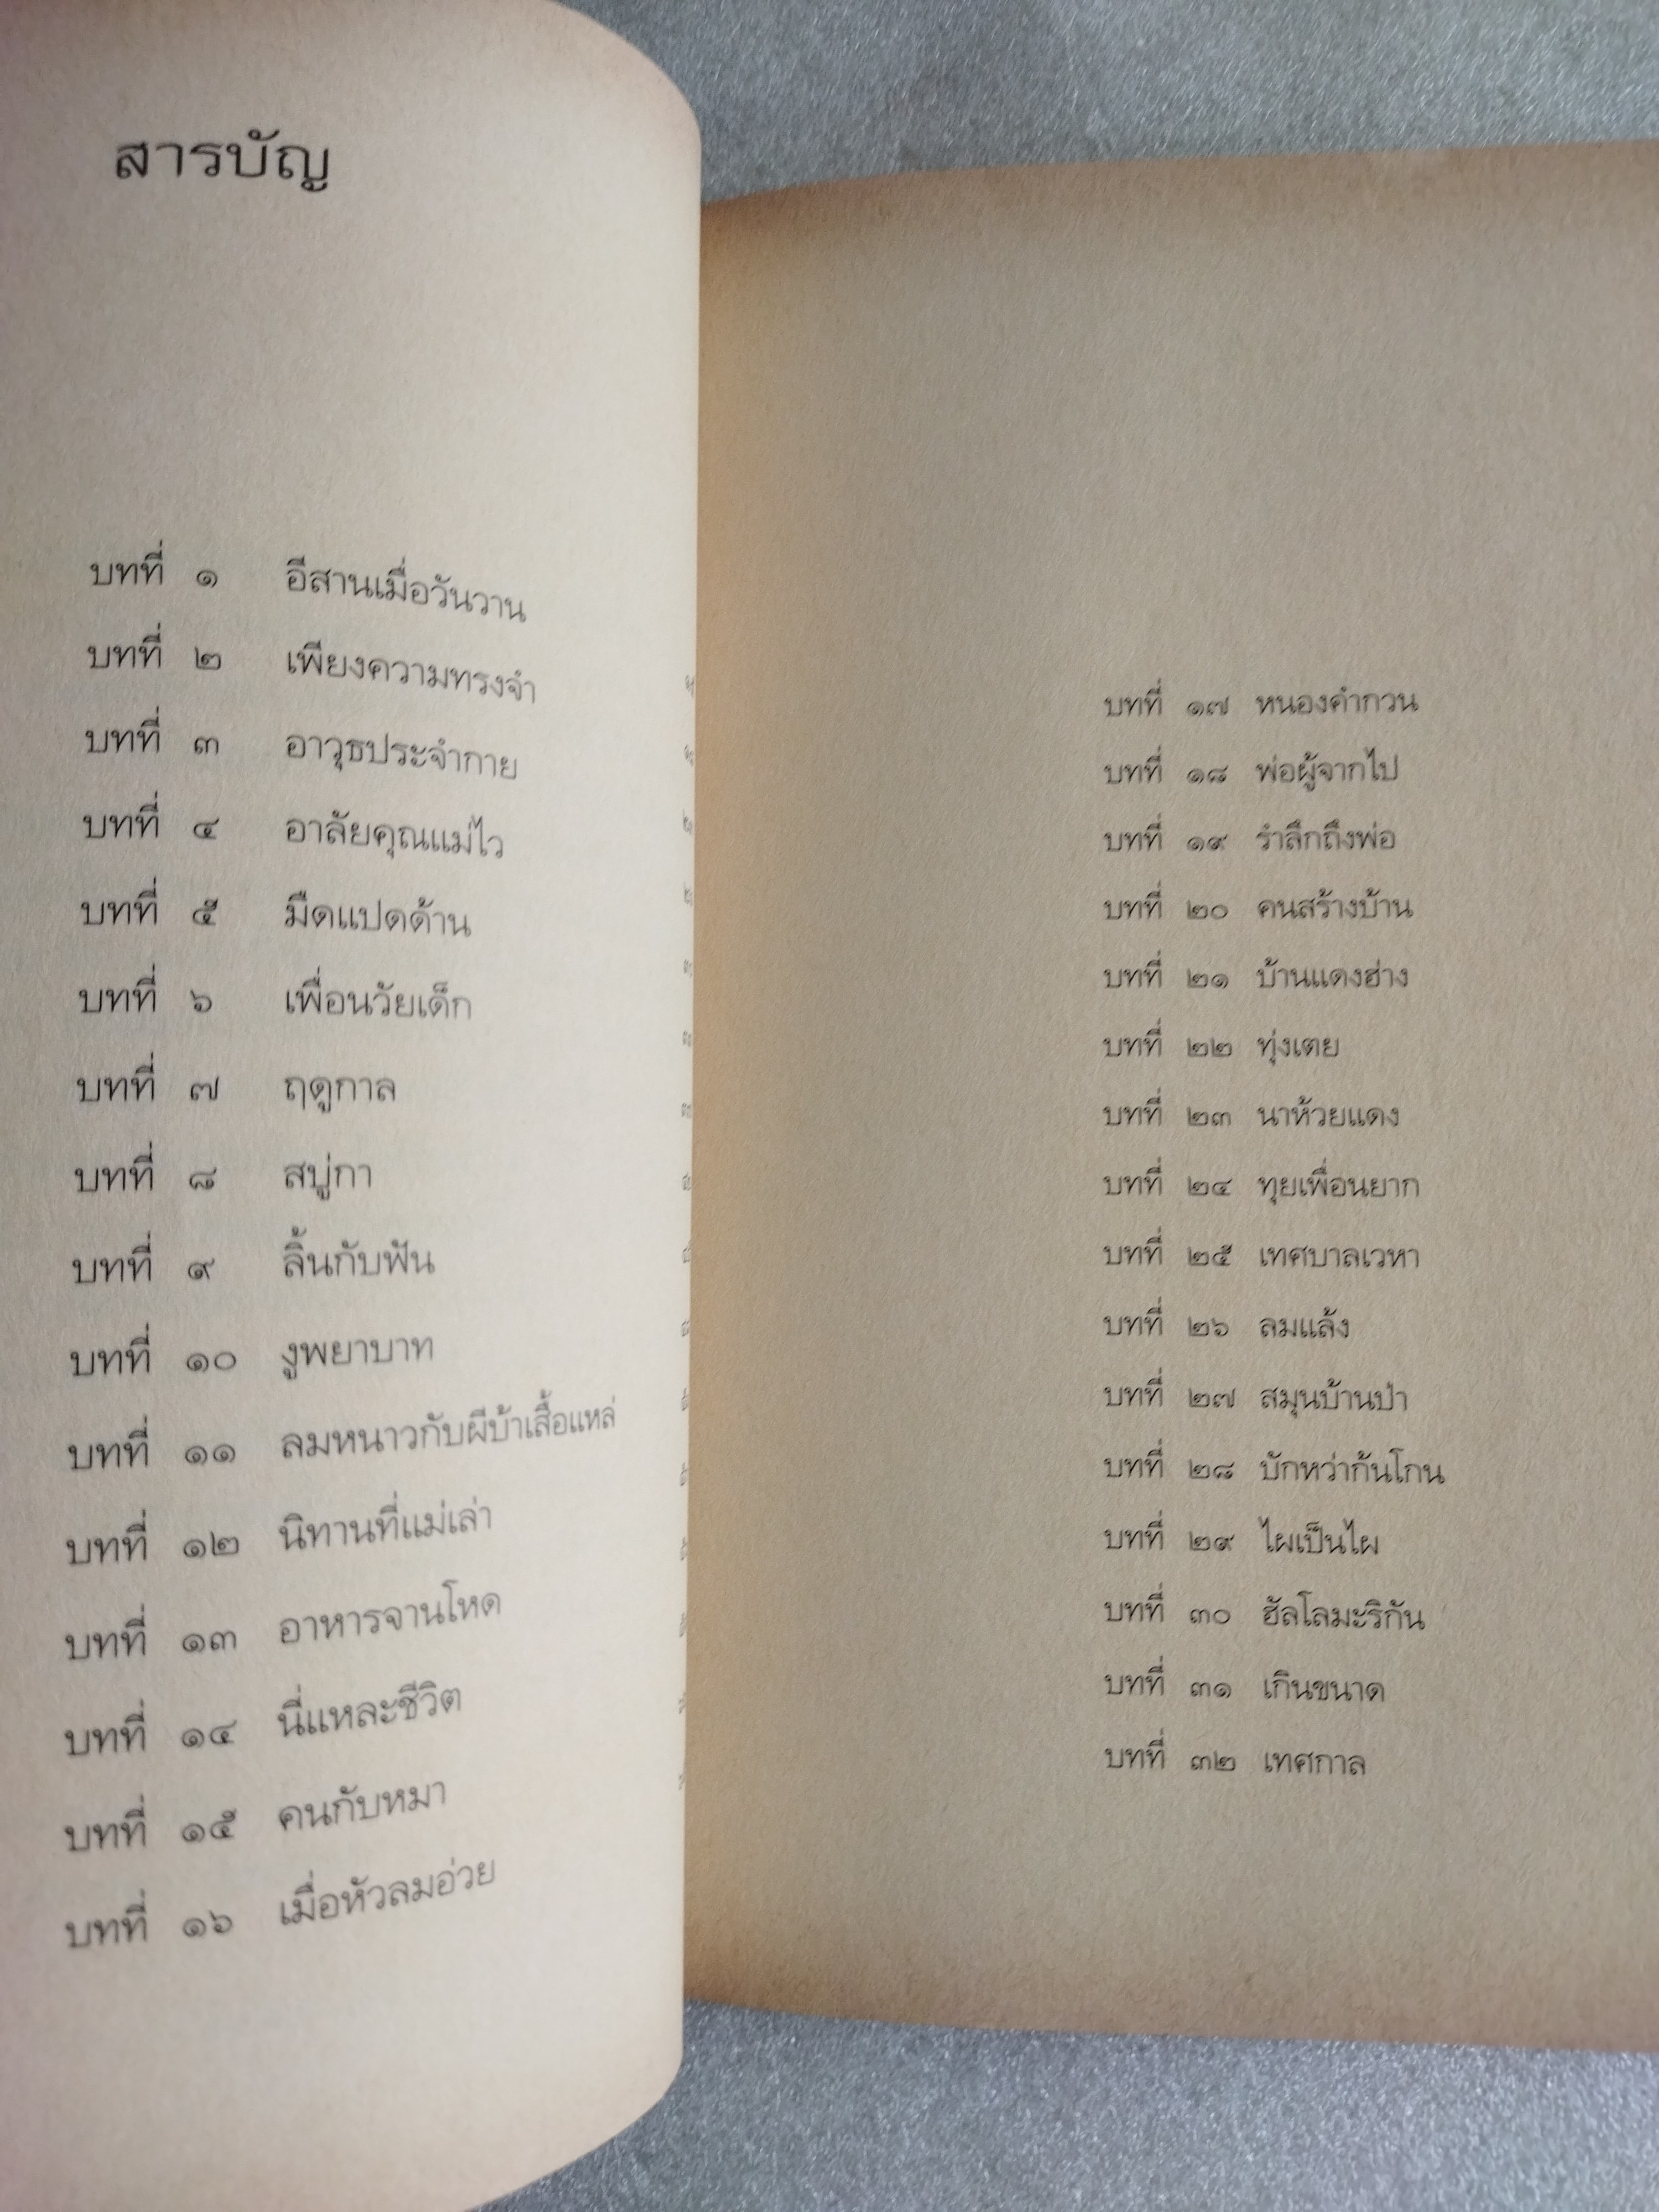 สารบัญ
บทที่ ๑ อีสานเมื่อวันวาน
บทที่ ๒ เพียงความทรงจำ
บทที่ ๓ อาวุธประจำกาย
บทที่ ๔ อาลัยคุณแม่ไว
บทที่ ๕ มืดแปดด้าน
บทที่ ๖ เพื่อนวัยเด็ก
บทที่ ๗ ฤดูกาล
บทที่ ๘ สบู่กา
บทที่ ๙ ลิ้นกับฟัน
บทที่ ๑๐ งูพยาบาท
บทที่ ๑๑ ลมหนาวกับผีบ้าเสื้อแหล่
บทที่ ๑๒ นิทานที่แม่เล่า
บทที่ ๑๓ อาหารจานโหด
บทที่ ๑๔ นี่แหละชีวิต
บทที่ ๑๕ คนกับหมา
บทที่ ๑๖ เมื่อหัวลมอ่วย
บทที่ ๑๗ หนองคำกวน
บทที่ ๑๘ พ่อผู้จากไป
บทที่ ๑๙ รำลึกถึงพ่อ
บทที่ ๒๐ คนสร้างบ้าน
บทที่ ๒๑ บ้านแดงฮ่าง
บทที่ ๒๒ ทุ่งเตย
บทที่ ๒๓ นาห้วยแดง
บทที่ ๒๔ ทุยเพื่อนยาก
บทที่ ๒๕ เทศบาลเวหา
บทที่ ๒๖ ลมแล้ง
บทที่ ๒๗ สมุนบ้านป่า
บทที่ ๒๘ บักหว่าก้นโกน
บทที่ ๒๙ ไผเป็นไผ
บทที่ ๓๐ ฮัลโลมะริกัน
บทที่ ๓๑ เกินขนาด
บทที่ ๓๒ เทศกาล